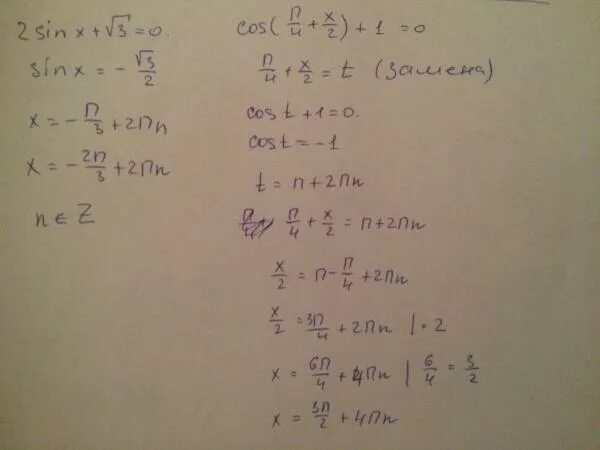 2 sin x + √3 = 0.
sin x = - √3/2
x = - П/3 + 2Пn
x = - 2П/3 + 2Пn
n ∈ Z
cos(П/4 + x/2) + 1 = 0
П/4 + x/2 = t (замена)
cos t + 1 = 0.
cos t = -1
t = П + 2Пn
П/4 + x/2 = П + 2Пn
x/2 = П - П/4 + 2Пn
x/2 = 3П/4 + 2Пn | · 2
x = 6П/4 + 4Пn | 6/4 = 3/2
x = 3П/2 + 4Пn